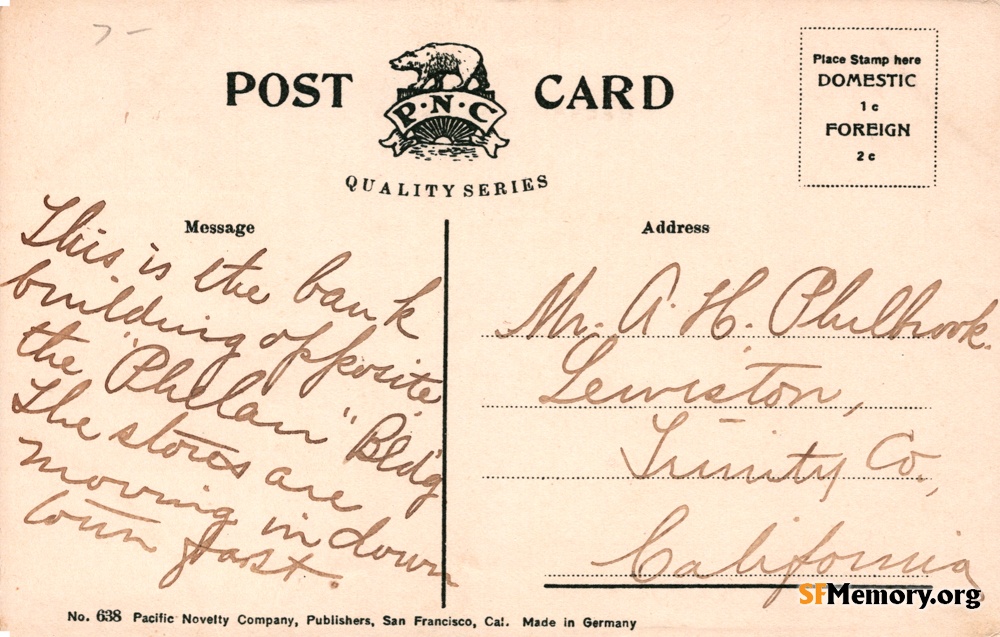 POST CARD
P·N·C
QUALITY SERIES
Place Stamp here
DOMESTIC
1c
FOREIGN
2c
Message
This is the bank
building opposite
the "Phelan" Bldg
The stores are
moving in down
town fast.
Address
Mr. A. H. Philbrook.
Lewiston,
Trinity Co.,
California
No. 638 Pacific Novelty Company, Publishers, San Francisco, Cal. Made in Germany
SFMemory.org